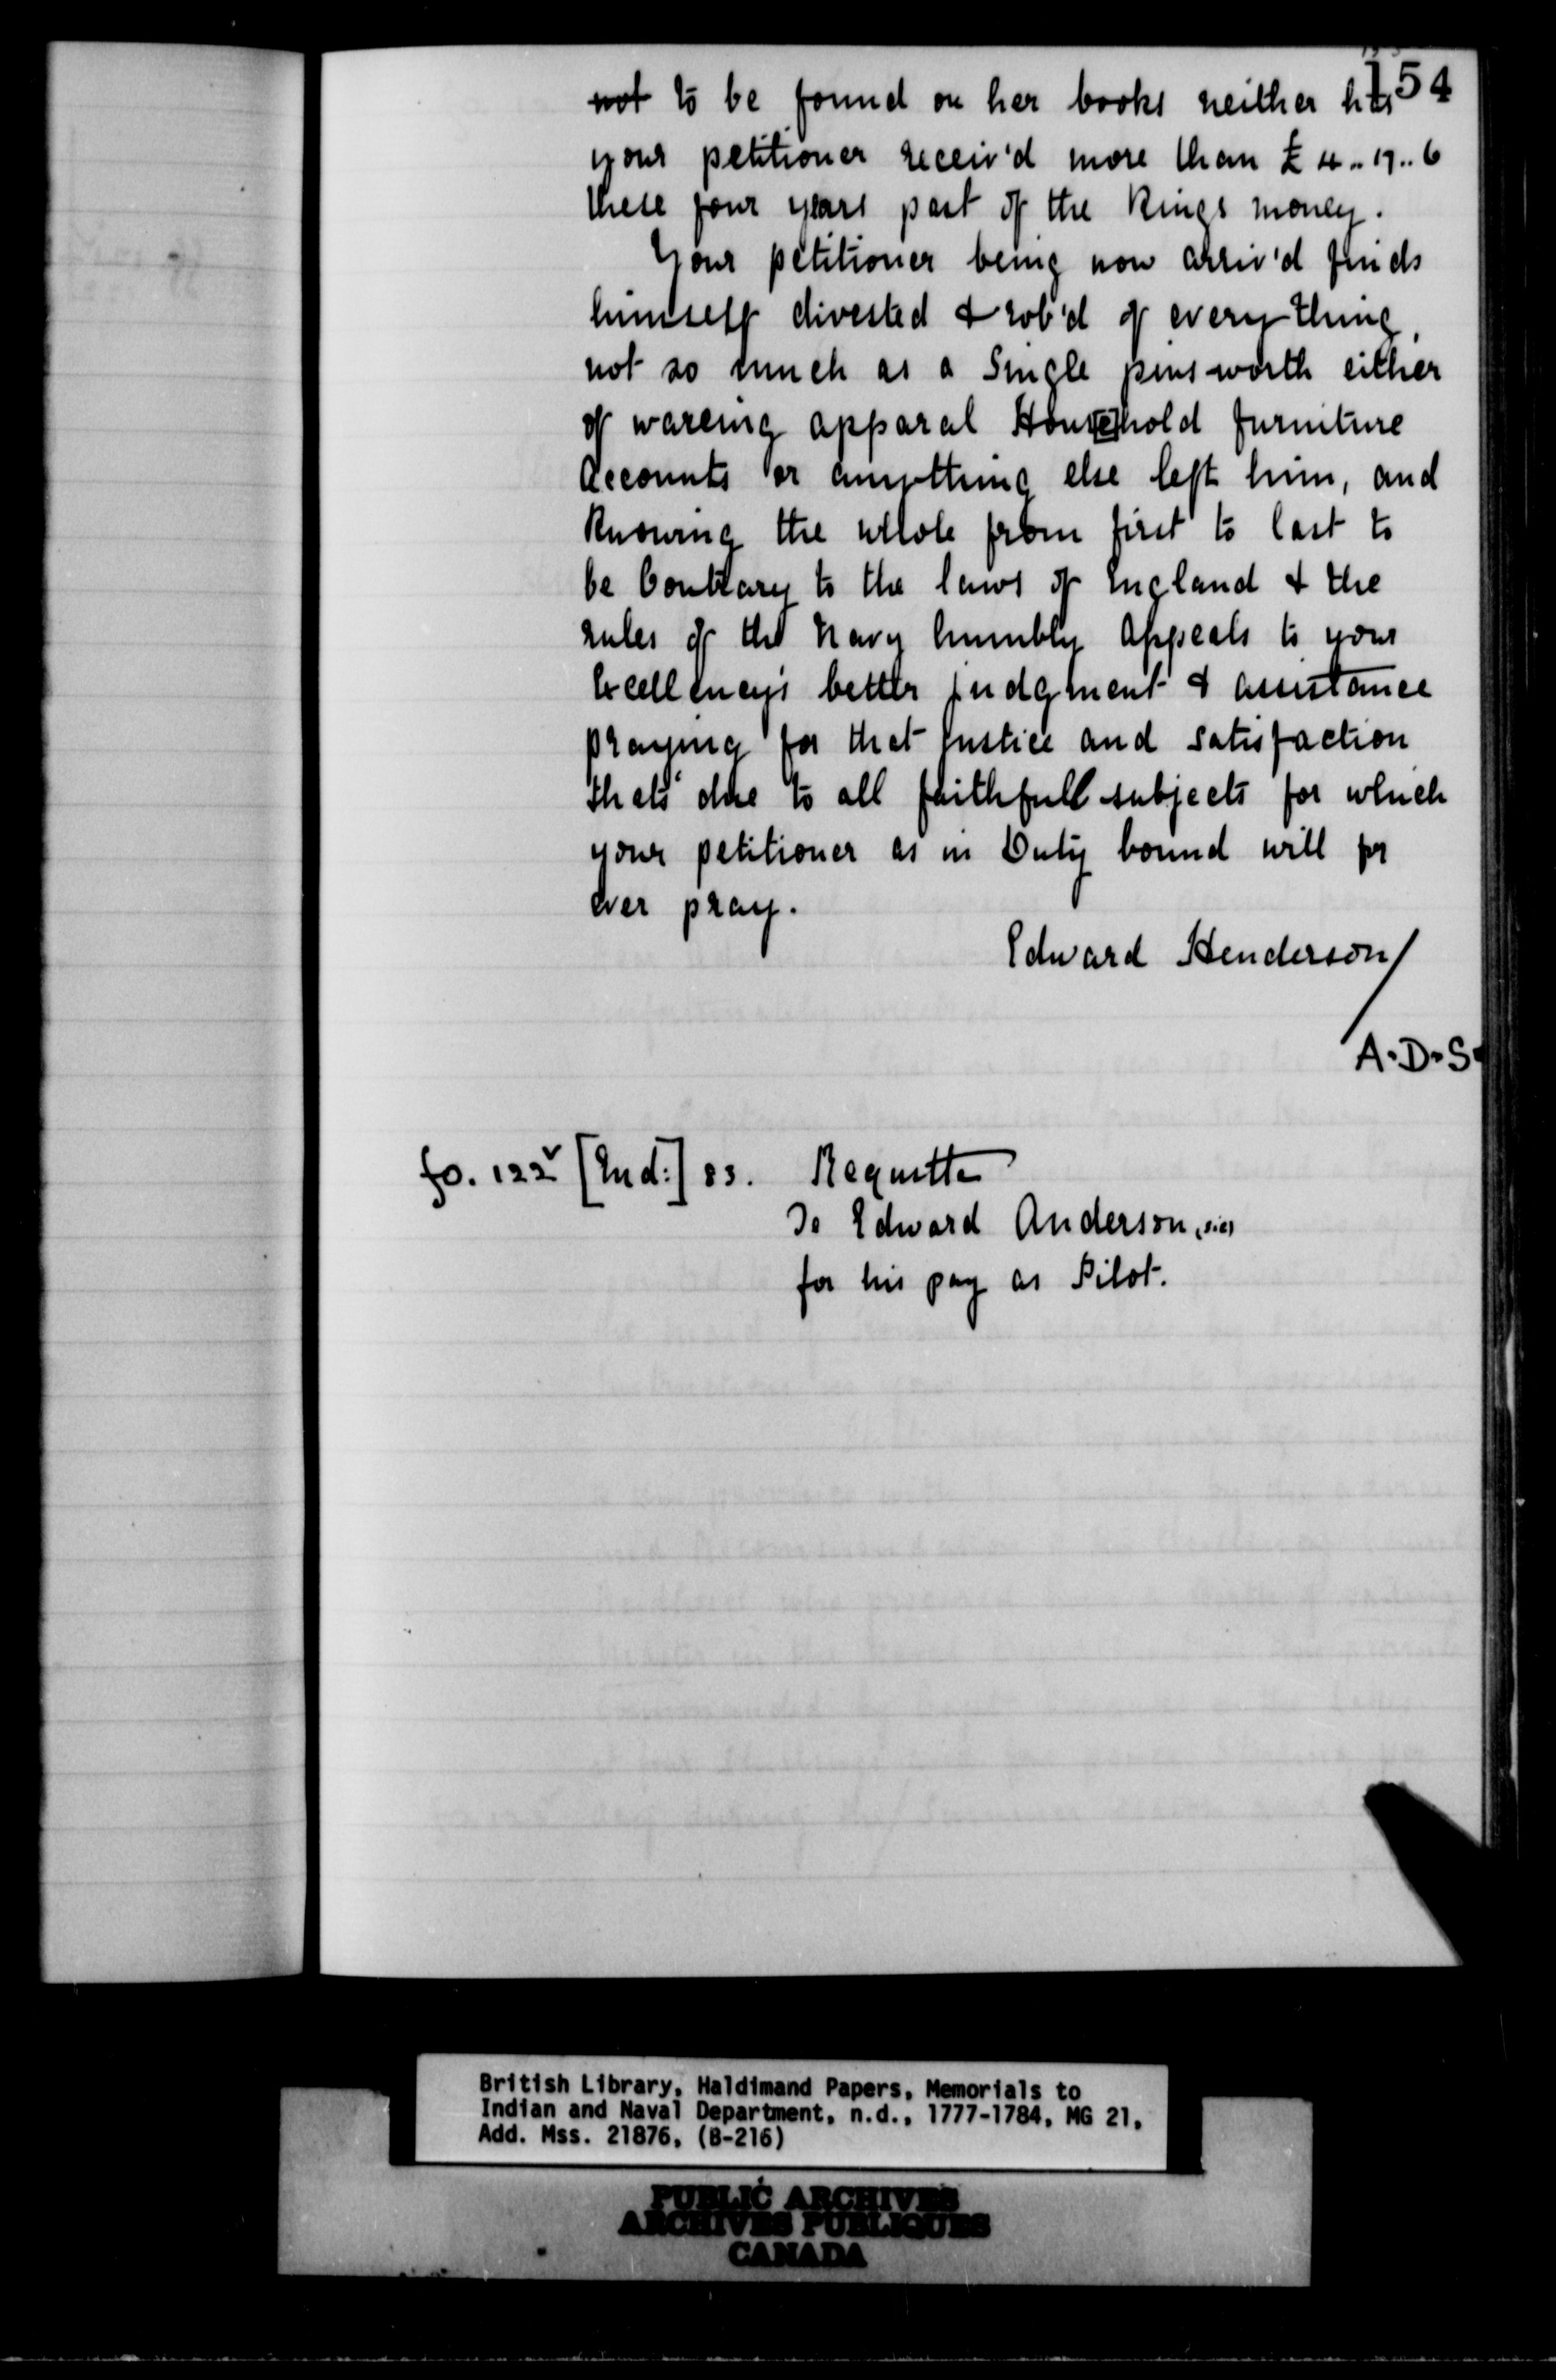 154
not to be found on her books neither has
your petitioner receiv'd more than £ 4..17..6
these four years past of the Kings money.
Your petitioner being now arriv'd finds
himself divested & rob'd of every thing,
not so much as a Single pins-worth either
of wareing apparal Hous[e]hold furniture
Accounts or anything else left him, and
Knowing the whole from first to last to
be Contrary to the laws of England & the
rules of the Navy humbly Appeals to your
Excellency's better judgment & assistance
praying for that Justice and satisfaction
thats' due to all faithfull subjects for which
your petitioner as in Duty bound will for
ever pray.
Edward Henderson/
A.D.S.
fo. 122v [End:] 83. Requette
De Edward Anderson (sic)
for his pay as Pilot.
British Library, Haldimand Papers, Memorials to
Indian and Naval Department, n.d., 1777-1784, MG 21,
Add. Mss. 21876, (B-216)
PUBLIC ARCHIVES
ARCHIVES PUBLIQUES
CANADA